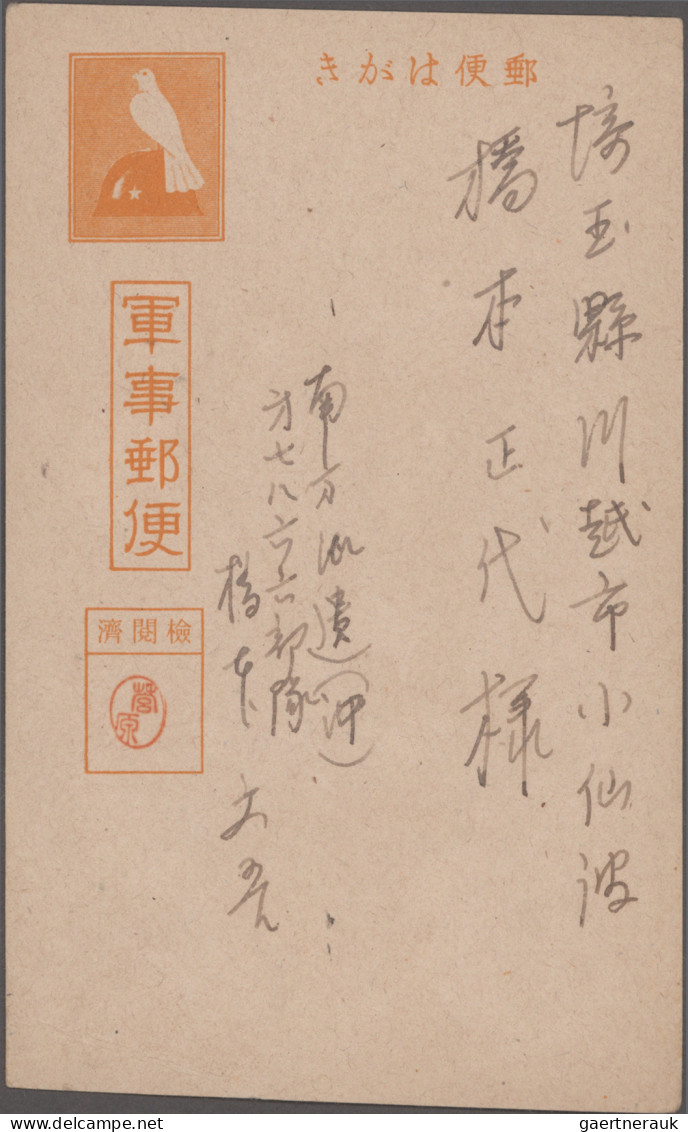 きがは便郵
埼玉縣川越市小仙波
橋本正代様
南方派遣(沖)
才七八六六部隊
橋本文吾
軍事郵便
濟閲檢
菅原
gaertnerauk